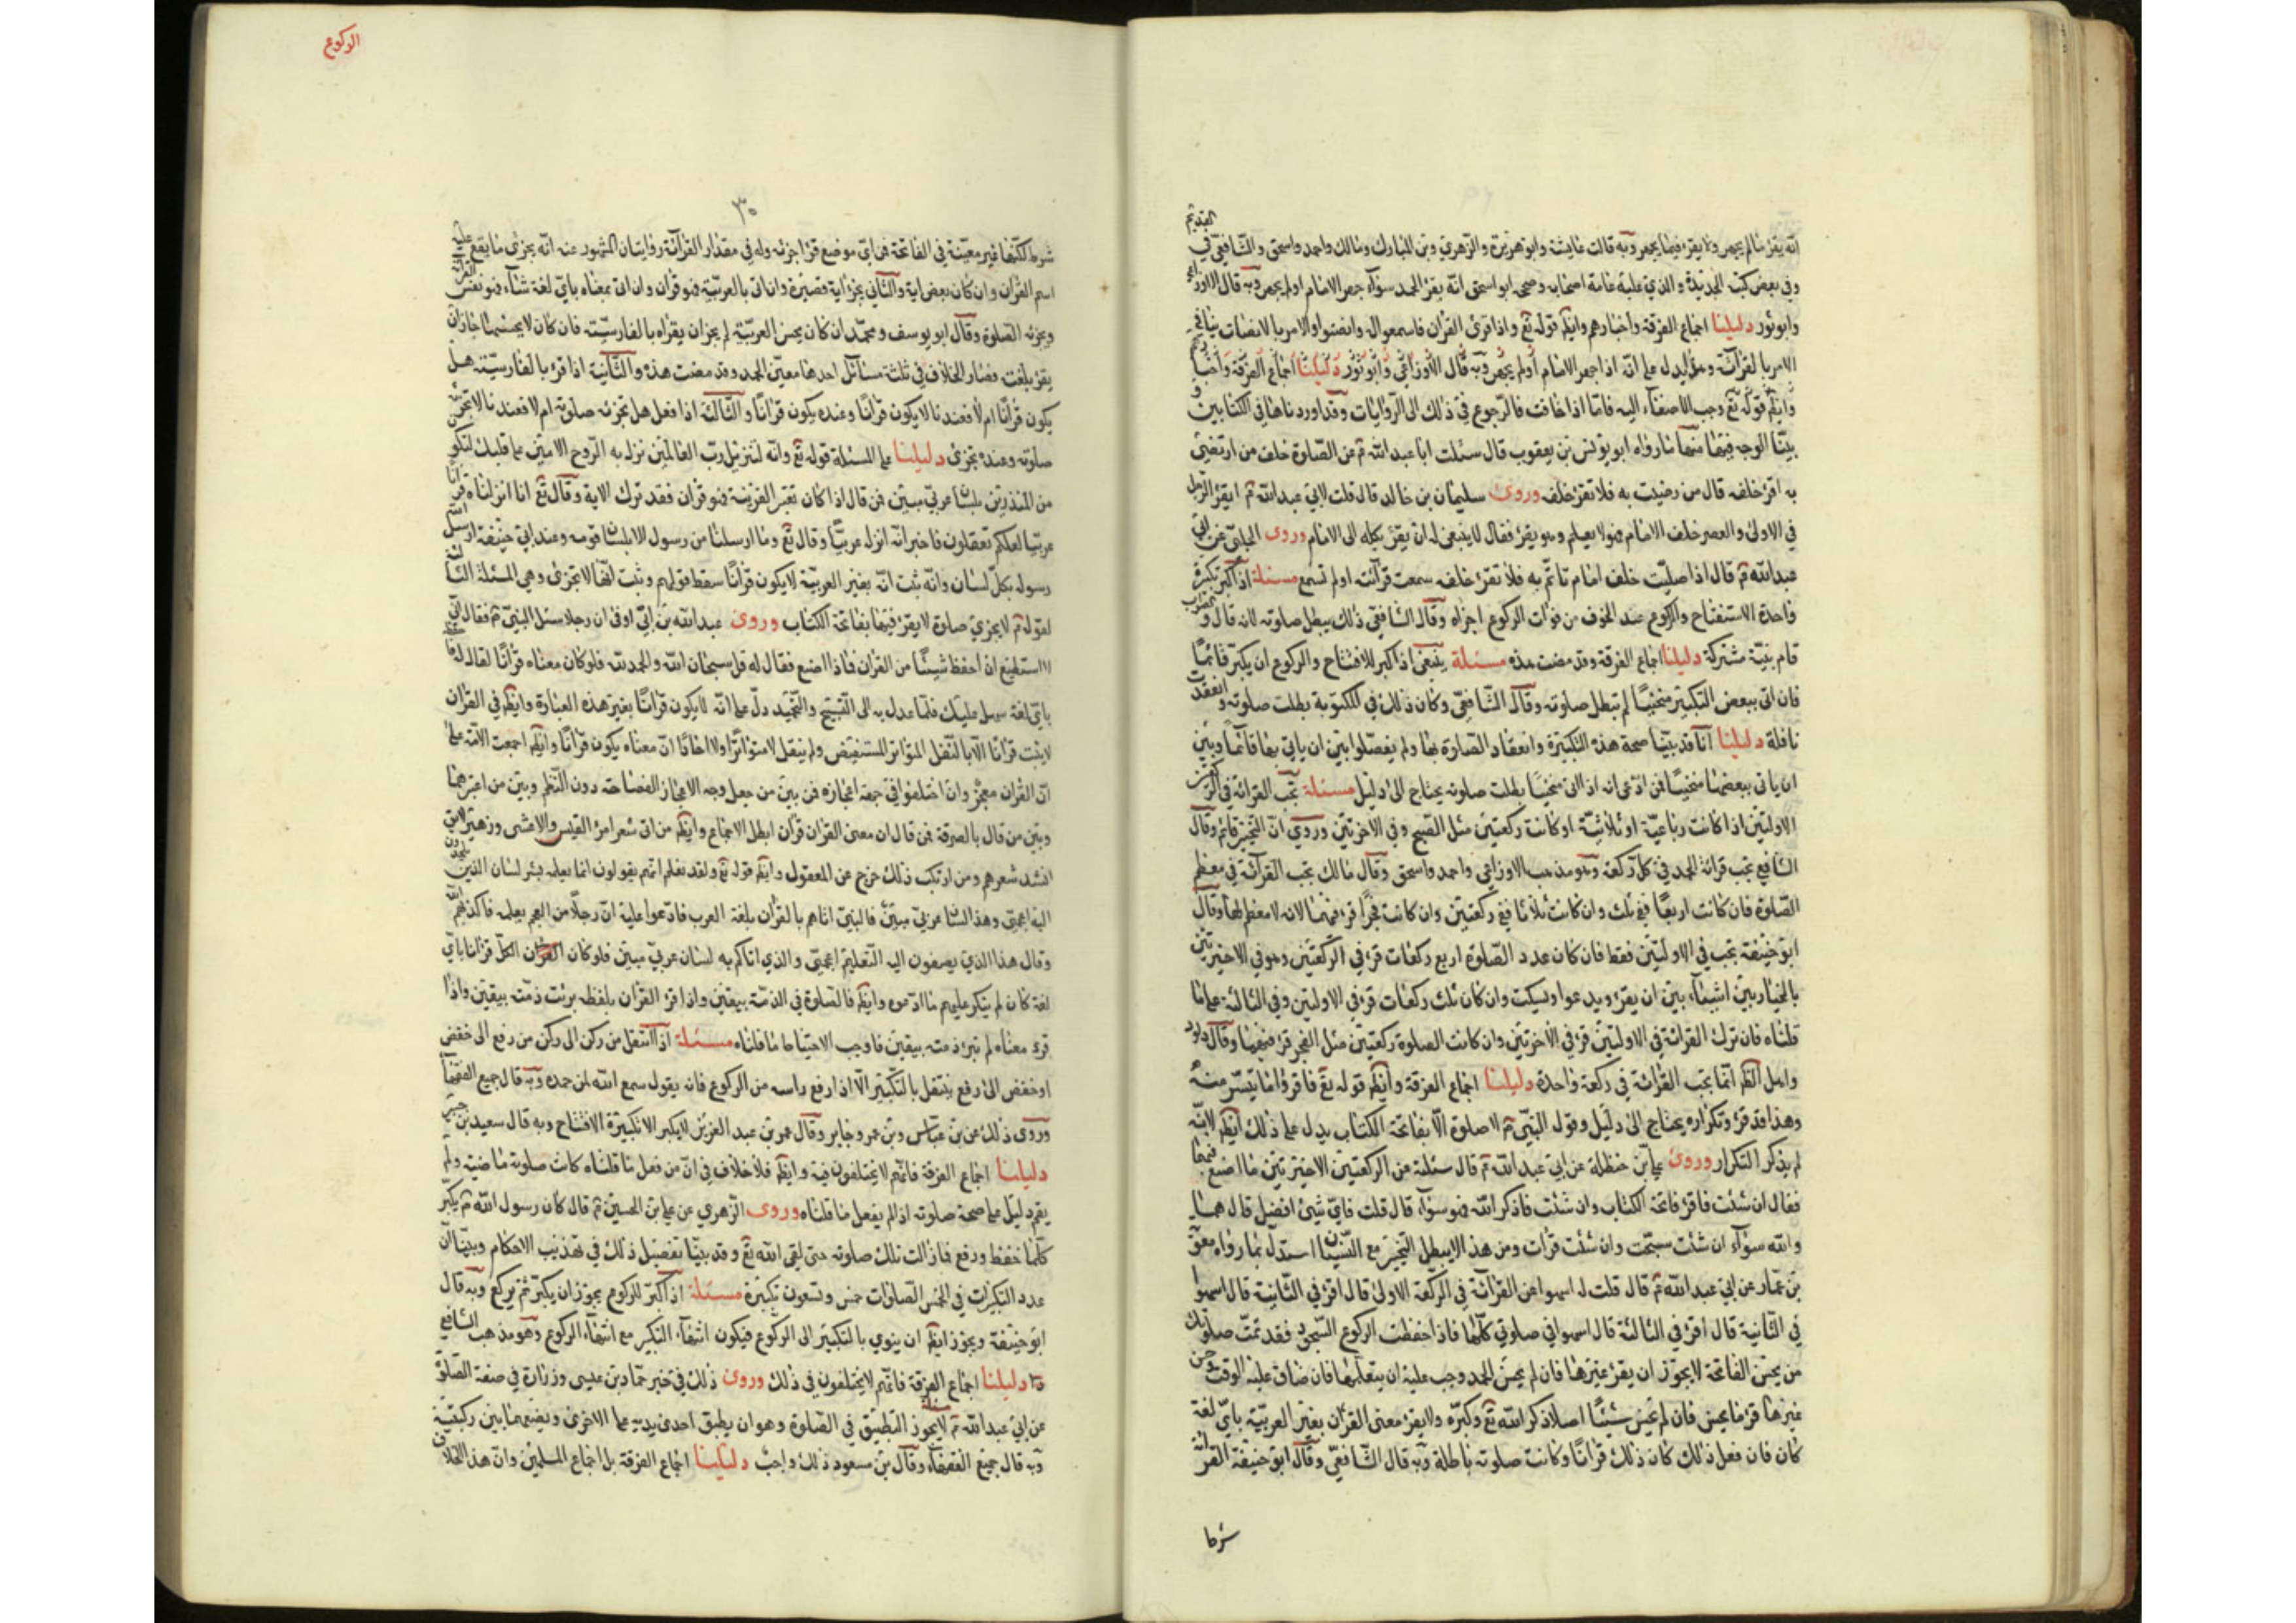 انه يقرء فيما لم يجهر ولا يقرء فيما يجهر وبه قالت عايشة وابو هريرة والزهري وبن المبارك ومالك واحمد واسحق والشافعي في القديم
وفي بعض كتبه الجديدة والذي عليه عامة اصحابه وصححه ابو اسحق انه يقرء الحمد سوآء جهر الامام او لم يجهر وبه قال الاوزاعي
وابو ثور دليلنا اجماع الفرقة واخبارهم وايضا قوله تع واذا قرئ القران فاستمعوا له وانصتوا والامر بالانصات ينافي
الامر بالقرآئة اذا جهر الامام او لم يجهر وبه قال الاوزاعي وابو ثور دليلنا اجماع الفرقة
وايضا قوله تع وجب الاصغآء اليه فاما اذا خافت فالرجوع في ذلك الى الروايات وقد اوردناها في الكتابين و
بينا الوجه فيها منها ما رواه ابو يونس بن يعقوب قال سئلت ابا عبد الله ع عن الصلوة خلف من ارتضى
به اقرء خلفه قال من رضيت به فلا تقرء خلفه وروى سليمان بن خالد قال قلت لابي عبد الله ع ايقرء الرجل
في الاولى والعصر خلف الامام وهو لا يعلم انه يقرء فقال لا ينبغي له ان يقرء يكله الى الامام وروى الحلبي عن ابي
عبد الله ع قال اذا صليت خلف امام تاتم به فلا تقرء خلفه سمعت قرآئته او لم تسمع مسئلة اذا كبر تكبيرة
واحدة للاستفتاح والركوع عند الخوف من فوات الركوع اجزاه وقال الشافعي ذلك يبطل صلوته لانه قال
قام بنية مشتركة دليلنا اجماع الفرقة وقد مضت هذه مسئلة ينبغي اذا كبر للافتتاح والركوع ان يكبر قائما
فان اتى ببعض التكبير منحنيا لم تبطل صلوته وقال الشافعي وكان ذلك في المكتوبة بطلت صلوته وانعقدت
نافلة دليلنا انا قد بينا صحة هذه التكبيرة وانعقاد الصلوة بها ولم يفصلوا بين ان ياتي بها قائما وبين
ان ياتي ببعضها منحنيا فمن ادعى انه اذا اتى منحنيا بطلت صلوته يحتاج الى دليل مسئلة تجب القرائة في الركعتين
الاولتين اذا كانت رباعية او ثلاثية او كانت ركعتين مثل الصبح وفي الاخرتين وروي ان التخيير قائم وقال
الشافعي تجب قرائة الحمد في كل ركعة وهو مذهب الاوزاعي واحمد واسحق وقال مالك تجب القرآئة في معظم
الصلوة فان كانت اربعا ففي ثلث وان كانت ثلاثا ففي ركعتين وان كانت فجرا قرء فيهما لانه لا معظم لها وقال
ابو حنيفة تجب في الاولتين فقط فان كان عدد الصلوة اربع ركعات قرء في الركعتين وهو في الاخيرتين
بالخيار بين اشيآء بين ان يقرء ويدعوا ويسكت وان كان ثلث ركعات قرء في الاولتين وفي الثالثة على ما
قلناه فان ترك القرائة في الاولتين قرء في الاخرتين وان كانت الصلوة ركعتين مثل الفجر قرء فيهما وقال داود
واهل الظاهر انما تجب القرائة في ركعة واحدة دليلنا اجماع الفرقة وايضا قوله تع فاقرؤا ما تيسر منه
وهذا قد قرء وتكراره يحتاج الى دليل وقول النبي ع لا صلوة الا بفاتحة الكتاب يدل على ذلك ايضا لانه
لم يذكر التكرار وروى علي بن حنظلة عن ابي عبد الله ع قال سئلته عن الركعتين الاخيرتين ما اصنع فيهما
فقال ان شئت فاقرء فاتحة الكتاب وان شئت فاذكر الله فهو سوآء قال قلت فاي شيئ افضل قال هما
والله سوآء ان شئت سبحت وان شئت قرات ومن هذا لا يبطل التخيير مع النسيان استدل بما رواه معوية
بن عمار عن ابي عبد الله ع قال قلت له اسهوا عن القرآئة في الركعة الاولى قال اقرء في الثانية قال اسهوا
في الثانية قال اقرء في الثالثة قال اسهوا في صلوتي كلها فاذا حفظت الركوع السجود فقد تمت صلوتك
من يحسن الفاتحة لا يجوز ان يقرء غيرها فان لم يحسن الحمد وجب عليه ان يتعلمها فان ضاق عليه الوقت
غيرها قرء ما يحسن فان لم يحسن شيئا اصلا ذكر الله تع وكبره ولا يقرء معنى القران بغير العربية باي لغة
كان فان فعل ذلك كان ذلك قرآنا وكانت صلوته باطلة وبه قال الشافعي وقال ابو حنيفة القرائة
شرط
الركوع
٣٠
شرط لكنها غير معينة في الفاتحة فمن اي موضع قرء اجزئه وله في مقدار القرآئة روايتان المشهور عنه انه يجزئ ما يقع عليه
اسم القران وان كان بعض اية والثاني يجزئ اية قصيرة وان اتى بالعربية فهو قران وان اتى بمعناه باي لغة شآء فهو تفسير القران
ويجزئه الصلوة وقال ابو يوسف ومحمد ان كان يحسن العربية لم يجز ان يقراه بالفارسية فان كان لا يحسنها جاز ان
يقرء بلغته فصار الخلاف في ثلثة مسائل احدها معين الحمد وقد مضت هذه والثانية اذا قرء بالفارسية هل
يكون قرآنا ام لا فعندنا لا يكون قرآنا وعنده يكون قرآنا والثالثة اذا فعل هل تجزئه صلوته ام لا فعندنا لا تجزئه
صلوته وعنده تجزئ دليلنا على المسئلة قوله تع وانه لتنزيل رب العالمين نزل به الروح الامين على قلبك لتكون
من المنذرين بلسان عربي مبين فمن قال اذا كان بغير العربية فهو قران فقد ترك الاية وقال تع انا انزلناه قرآنا
عربيا لعلكم تعقلون فاخبر انه انزله عربيا وقال تع وما ارسلنا من رسول الا بلسان قومه وعند ابي حنيفة ارسل الله
رسوله بكل لسان وانه ثبت انه بغير العربية لا يكون قرآنا سقط قولهم وثبت انها لا تجزئ وهي المسئلة الثالثة
لقوله ع لا يجزئ صلوة لا يقرء فيها بفاتحة الكتاب وروى عبد الله بن ابي اوفى ان رجلا سئل النبي ع فقال اني
لا استطيع ان احفظ شيئا من القران فماذا اصنع فقال له قل سبحان الله والحمد لله فلو كان معناه قرآنا لقال له
باي لغة سهل عليك فلما عدل به الى التسبيح والتحميد دل على انه لا يكون قرآنا بغير هذه العبارة وايضا في القران
لا يثبت قرآنا الا بالنقل المتواتر المستفيض ولم ينقل لا متواترا ولا احادا ان معناه يكون قرآنا وايضا اجمعت الامة على
ان القران معجز وان اختلفوا في جهة اعجازه فمن بين من جعل وجه الاعجاز الفصاحة دون النظم وبين من اعتبرهما
وبين من قال بالصرفة فمن قال ان معنى القران قران ابطل الاجماع وايضا من اتى شعر امرء القيس والاعشى وزهير لا يق
انشد شعرهم ومن ارتكب ذلك خرج عن المعقول وايضا قوله تع ولقد نعلم انهم يقولون انما يعلمه بشر لسان الذين يلحدون
اليه اعجمي وهذا لسان عربي مبين فالنبي اتاهم بالقران بلغة العرب فادعوا عليه ان رجلا من العجم يعلمه فاكذبهم الله
وقال هذا الذي يصفون اليه التعليم اعجمي والذي اتاكم به لسان عربي مبين فلو كان الكل قرآنا باي
لغة كان لم ينكر عليهم ما ادعوه وايضا فالصلوة في الذمة بيقين واذا قرء القران بلفظه برئت ذمته بيقين واذا
قرء معناه لم تبرء ذمته بيقين فاوجب الاحتياط ما قلناه مسئلة اذا انتقل من ركن الى ركن من رفع الى خفض
او خفض الى رفع ينتقل بالتكبير الا اذا رفع راسه من الركوع فانه يقول سمع الله لمن حمده وبه قال جميع الفقهآء
وروى ذلك عن بن عباس وبن عمر وجابر وقال عمر بن عبد العزيز لا يكبر الا تكبيرة الافتتاح وبه قال سعيد بن جبير
دليلنا اجماع الفرقة فانهم لا يختلفون فيه وايضا فلا خلاف في ان من فعل ما قلناه كانت صلوته ماضية ولم
يقم دليل على صحة صلوته اذا لم يفعل ما قلناه وروى الزهري عن علي بن الحسين ع قال كان رسول الله ع يكبر
كلما خفض ورفع فما زالت تلك صلوته حتى لقى الله تع وقد بينا تفصيل ذلك في تهذيب الاحكام وبينا ان
عدد التكبيرات في الخمس الصلوات خمس وتسعون تكبيرة مسئلة اذا كبر للركوع يجوز ان يكبر ثم يركع وبه قال
ابو حنيفة ويجوز ايضا ان ينوي بالتكبير الى الركوع فيكون انتهآء التكبير مع انتهآء الركوع وهو مذهب الشافعي
دليلنا اجماع الفرقة فانهم لا يختلفون في ذلك وروى ذلك في خبر حماد بن عيسى وزرارة في صفة الصلوة
عن ابي عبد الله ع لا يجوز التطبيق في الصلوة وهو ان يطبق احدى يديه على الاخرى ويضعهما بين ركبتيه
وبه قال جميع الفقهآء وقال بن مسعود ذلك واجب دليلنا اجماع الفرقة بل اجماع المسلمين وان هذا الخلاف